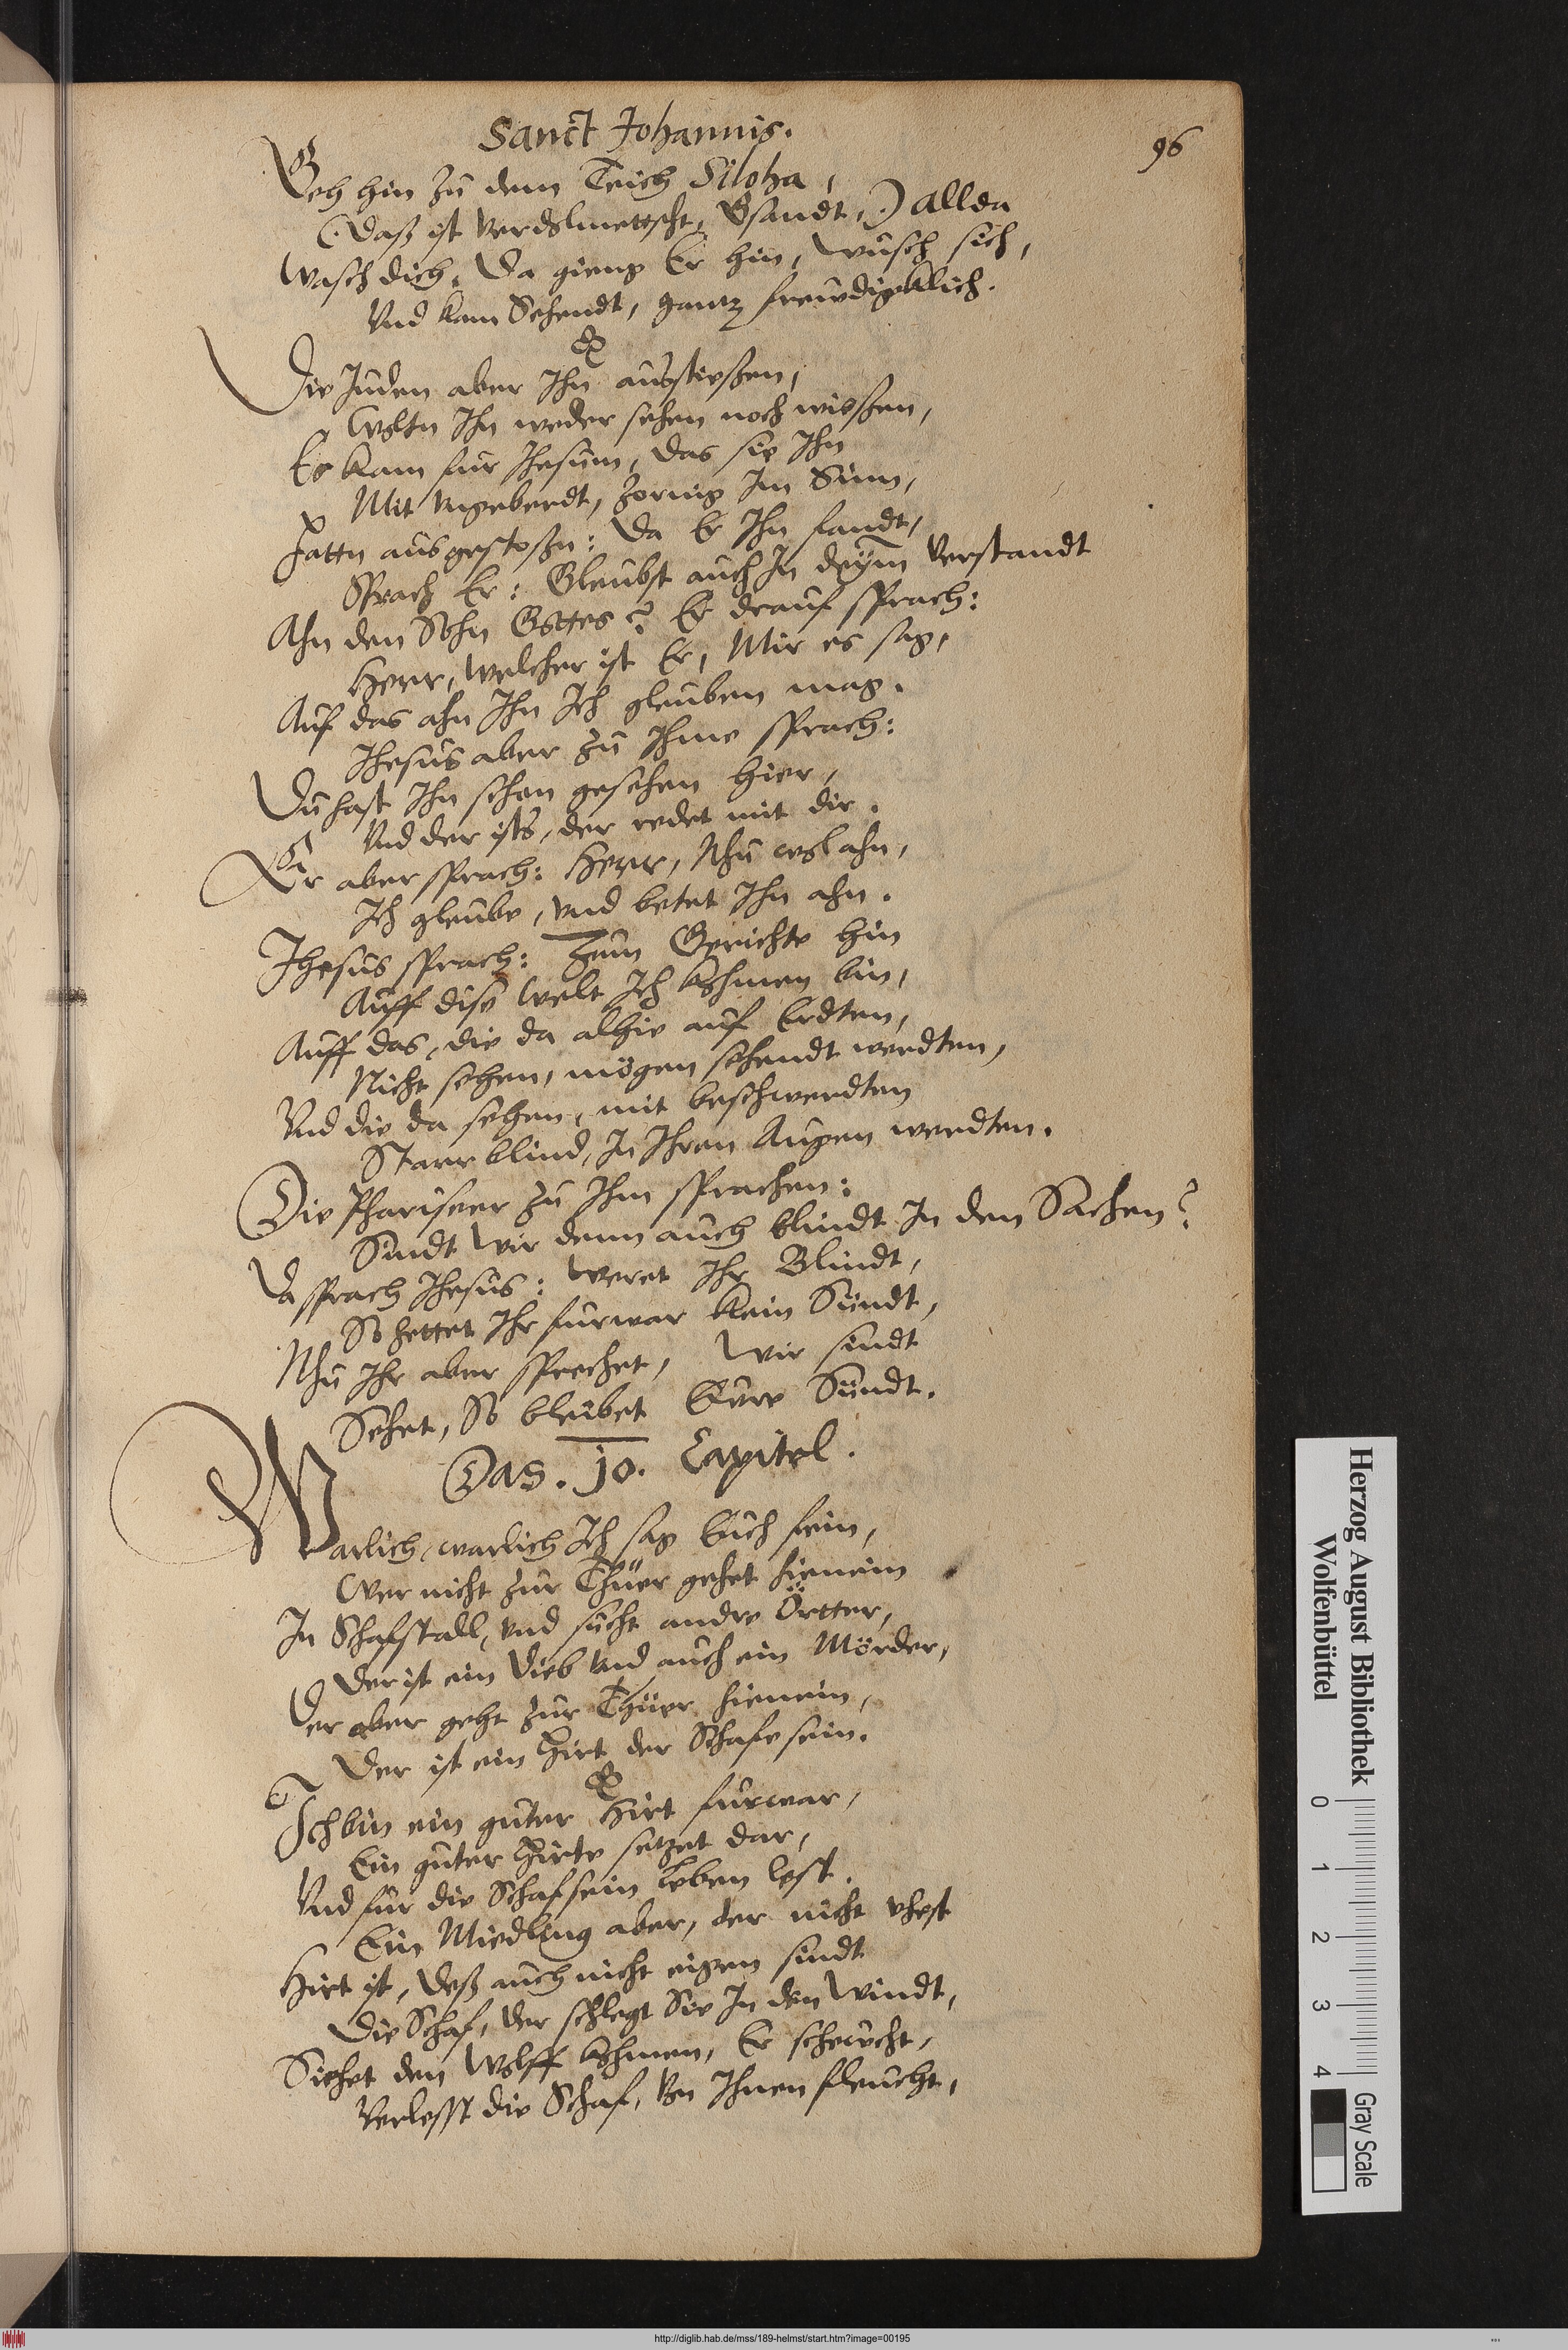 Sanct Johannis.
96
Geh hin zu dem Teich Siloha,
(Daß ist verdolmettscht, Gsandt,) allda
Wasch dich. Da gieng Er hin, wusch sich,
Vnd kam Sehendt, gantz freudigklich.
Die Juden aber Ihn ausstießen,
Woltn Ihn weder sehen noch wießen,
Es kam fur Jhesum, das sie Ihn
Mit vngeberdt, zornig Im Sinn,
Hattn ausgestoßn: Da Er Ihn fandt,
Sprach Er: Gleubst auch In deym Verstandt
Ahn den Sohn Gottes? Er drauf sprach:
Herr, welcher ist Er, Mir es sag,
Auf das ahn Ihn Ich gleuben mag.
Jhesus aber zu Ihme sprach:
Du hast Ihn schon gesehen hier,
Vnd der ists, der redet mit dir.
Er aber sprach: Herr, Nhu wol ahn,
Ich gleube, vnd betet Ihn ahn.
Jhesus sprach: Zum Gerichte hin
Auff dise Welt Ich kohmen bin,
Auff das, die da alhie auf Erdten,
Nicht sehen, mögen sehendt werdten,
Vnd die da sehen, mit beschwerdten
Starr blind, In Ihren Augen werdten.
Die Phariseer zu Ihm sprachen:
Sindt wir denn auch blindt In den Sachen?
Da sprach Jhesus: Weret Ihr Blindt,
So hettet Ihr furwar kein Sündt,
Nhu Ihr aber sprechet, Wir sindt
Sehet, So bleibet Eure Sündt.
Das. 10. Capitel.
Warlich, warlich Ich sag Euch fein,
Wer nicht zur Thüer gehet hienein
In Schafstall, vnd sucht andre Örtter,
Der ist ein Dieb vnd auch ein Mörder,
Der aber geht zur Thüer hienein,
Der ist ein Hirt der Schafe sein.
Ich bin ein guter Hirt furwar,
Ein guter Hirte setzet dar,
Vnd für die Schaf sein Leben lest.
Ein Miedling aber, der nicht vhest
Hirt ist, Deß auch nicht eigen sindt
Die Schaf, der schlegt Sie In den Windt,
Siehet den Wolff kohmen, Er scheucht,
Verlesst die Schaf, von Ihnen fleucht,
Herzog August Bibliothek
Wolfenbüttel
0 1 2 3 4
Gray Scale
http://diglib.hab.de/mss/189-helmst/start.htm?image=00195